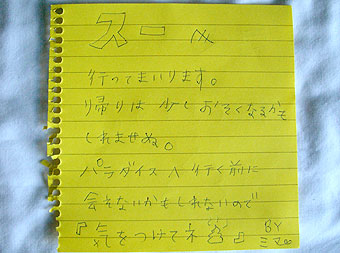 スーへ
行ってまいります。
帰りは少しおそくなるかも
しれませぬ。
パラダイスへ行く前に
会えないかもしれないので
『気をつけてネ』 BY
ミマ